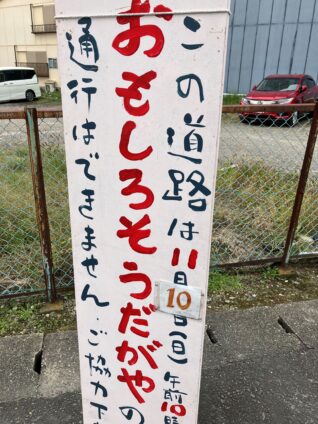 この道路は11月10日(日)午前10時
おもしろそうだがやの
通行はできません。ご協力下